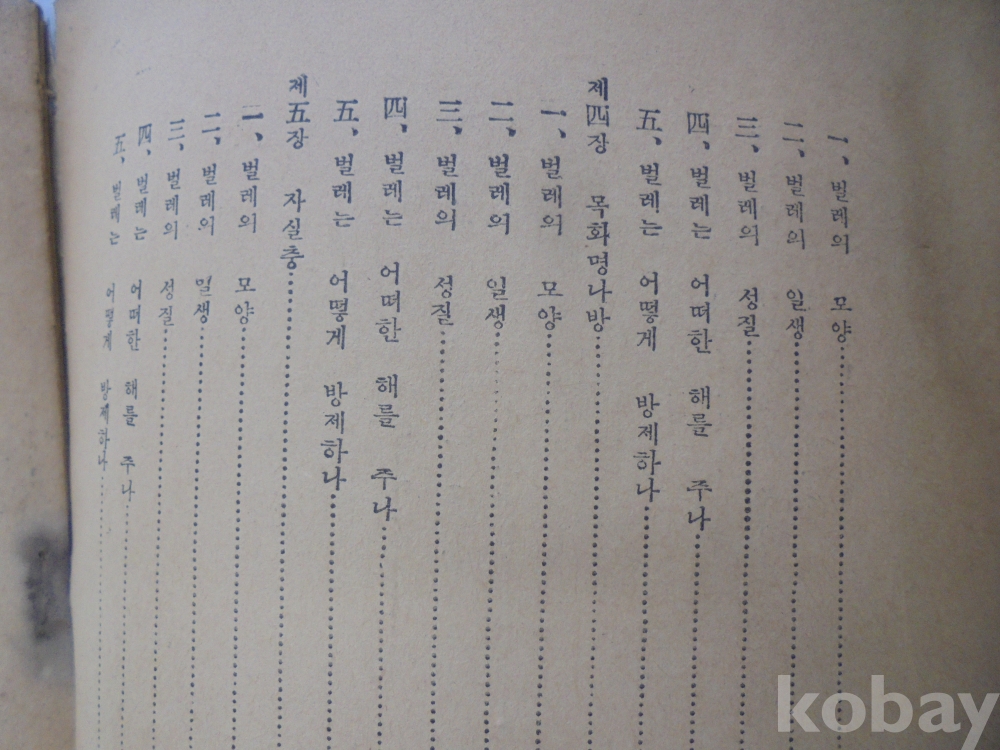 一、벌레의 모양
二、벌레의 일생
三、벌레의 성질
四、벌레는 어떠한 해를 주나
五、벌레는 어떻게 방제하나
제四장 목화명나방
一、벌레의 모양
二、벌레의 일생
三、벌레의 성질
四、벌레는 어떠한 해를 주나
五、벌레는 어떻게 방제하나
제五장 자실충
一、벌레의 모양
二、벌레의 일생
三、벌레의 성질
四、벌레는 어떠한 해를 주나
五、벌레는 어떻게 방제하나
kobay